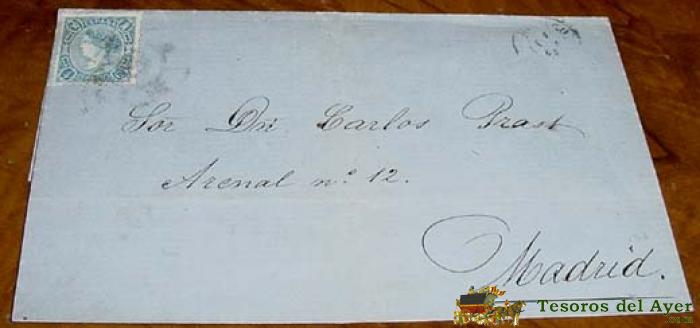 Sor Dn Carlos Prast
Arenal nº 12.
Madrid.
Tesoros del Ayer